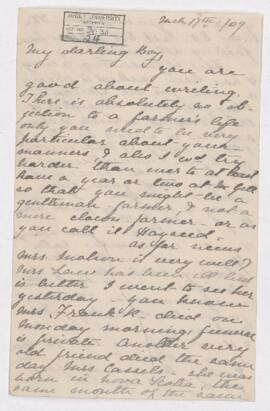 March 17th /09
McGILL UNIVERSITY
ARCHIVES
ACC. NO.
REF. 54
My darling Boy,
you are
good about writing.
There is absolutely no ob-
jection to a farmer's life
only you need to be very
particular about your
manners & also I wd try
harder than ever to at least
have a year or two at McGill
so that you might be a
gentleman farmer, & not a
mere clown farmer or as
you call it "Hayseed"
as for news
Mrs Molson is very well &
Mrs Law has been ill but
is better I went to see her
yesterday - you know
Mrs Frank K. died on
Monday morning funeral
is private. Another very
old friend died the same
day Mrs Cassels - she was
born in Nova Scotia, the
same month of the same